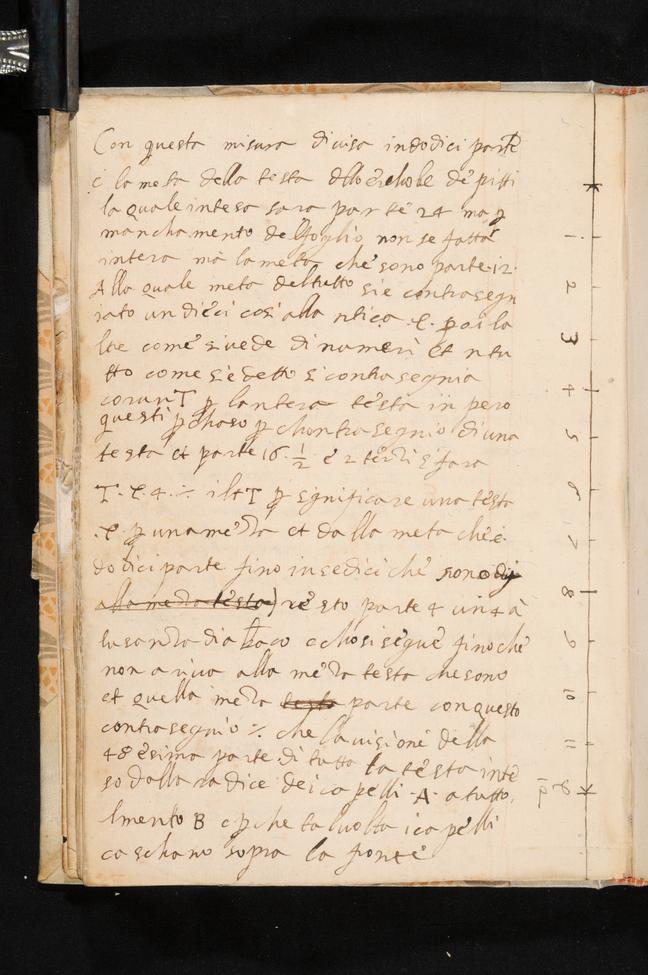 Con questa misura divisa in dodici parte
è la meta della testa dello erchole de pitti
la quale intesa sara parte 24 ma p
manchamento del foglio non se fatta
intera ma la meta che sono parte 12
Alla quale meta del tutto si e contrasegn
iato undici cosi alla
ltre come si vede di numeri et n tu
tto come si e detto si contrasegnia
T p lantera testa in pero
questi p chaso p chontrasegnio di una
testa et parte 16 1/2 e 2 terzi si fara
T. 4 il T p significare una testa
p una mezza et dalla meta che è
dodici parte fino in sedici che sono
alla mezza testa) resto parte 4 un 4 à
usanza di abaco e chosi segue fino che
non ariva alla mezza testa che sono
et quella meza testa parte con questo
contrasegnio ⁒ che la visione della
48 esima parte di tutta la testa inte
so dalla radice dei capelli A a tutto
lmento B e p che ta luolta i capelli
caschano sopra la fronte
1
2
3
4
5
6
7
8
9
10
11
12